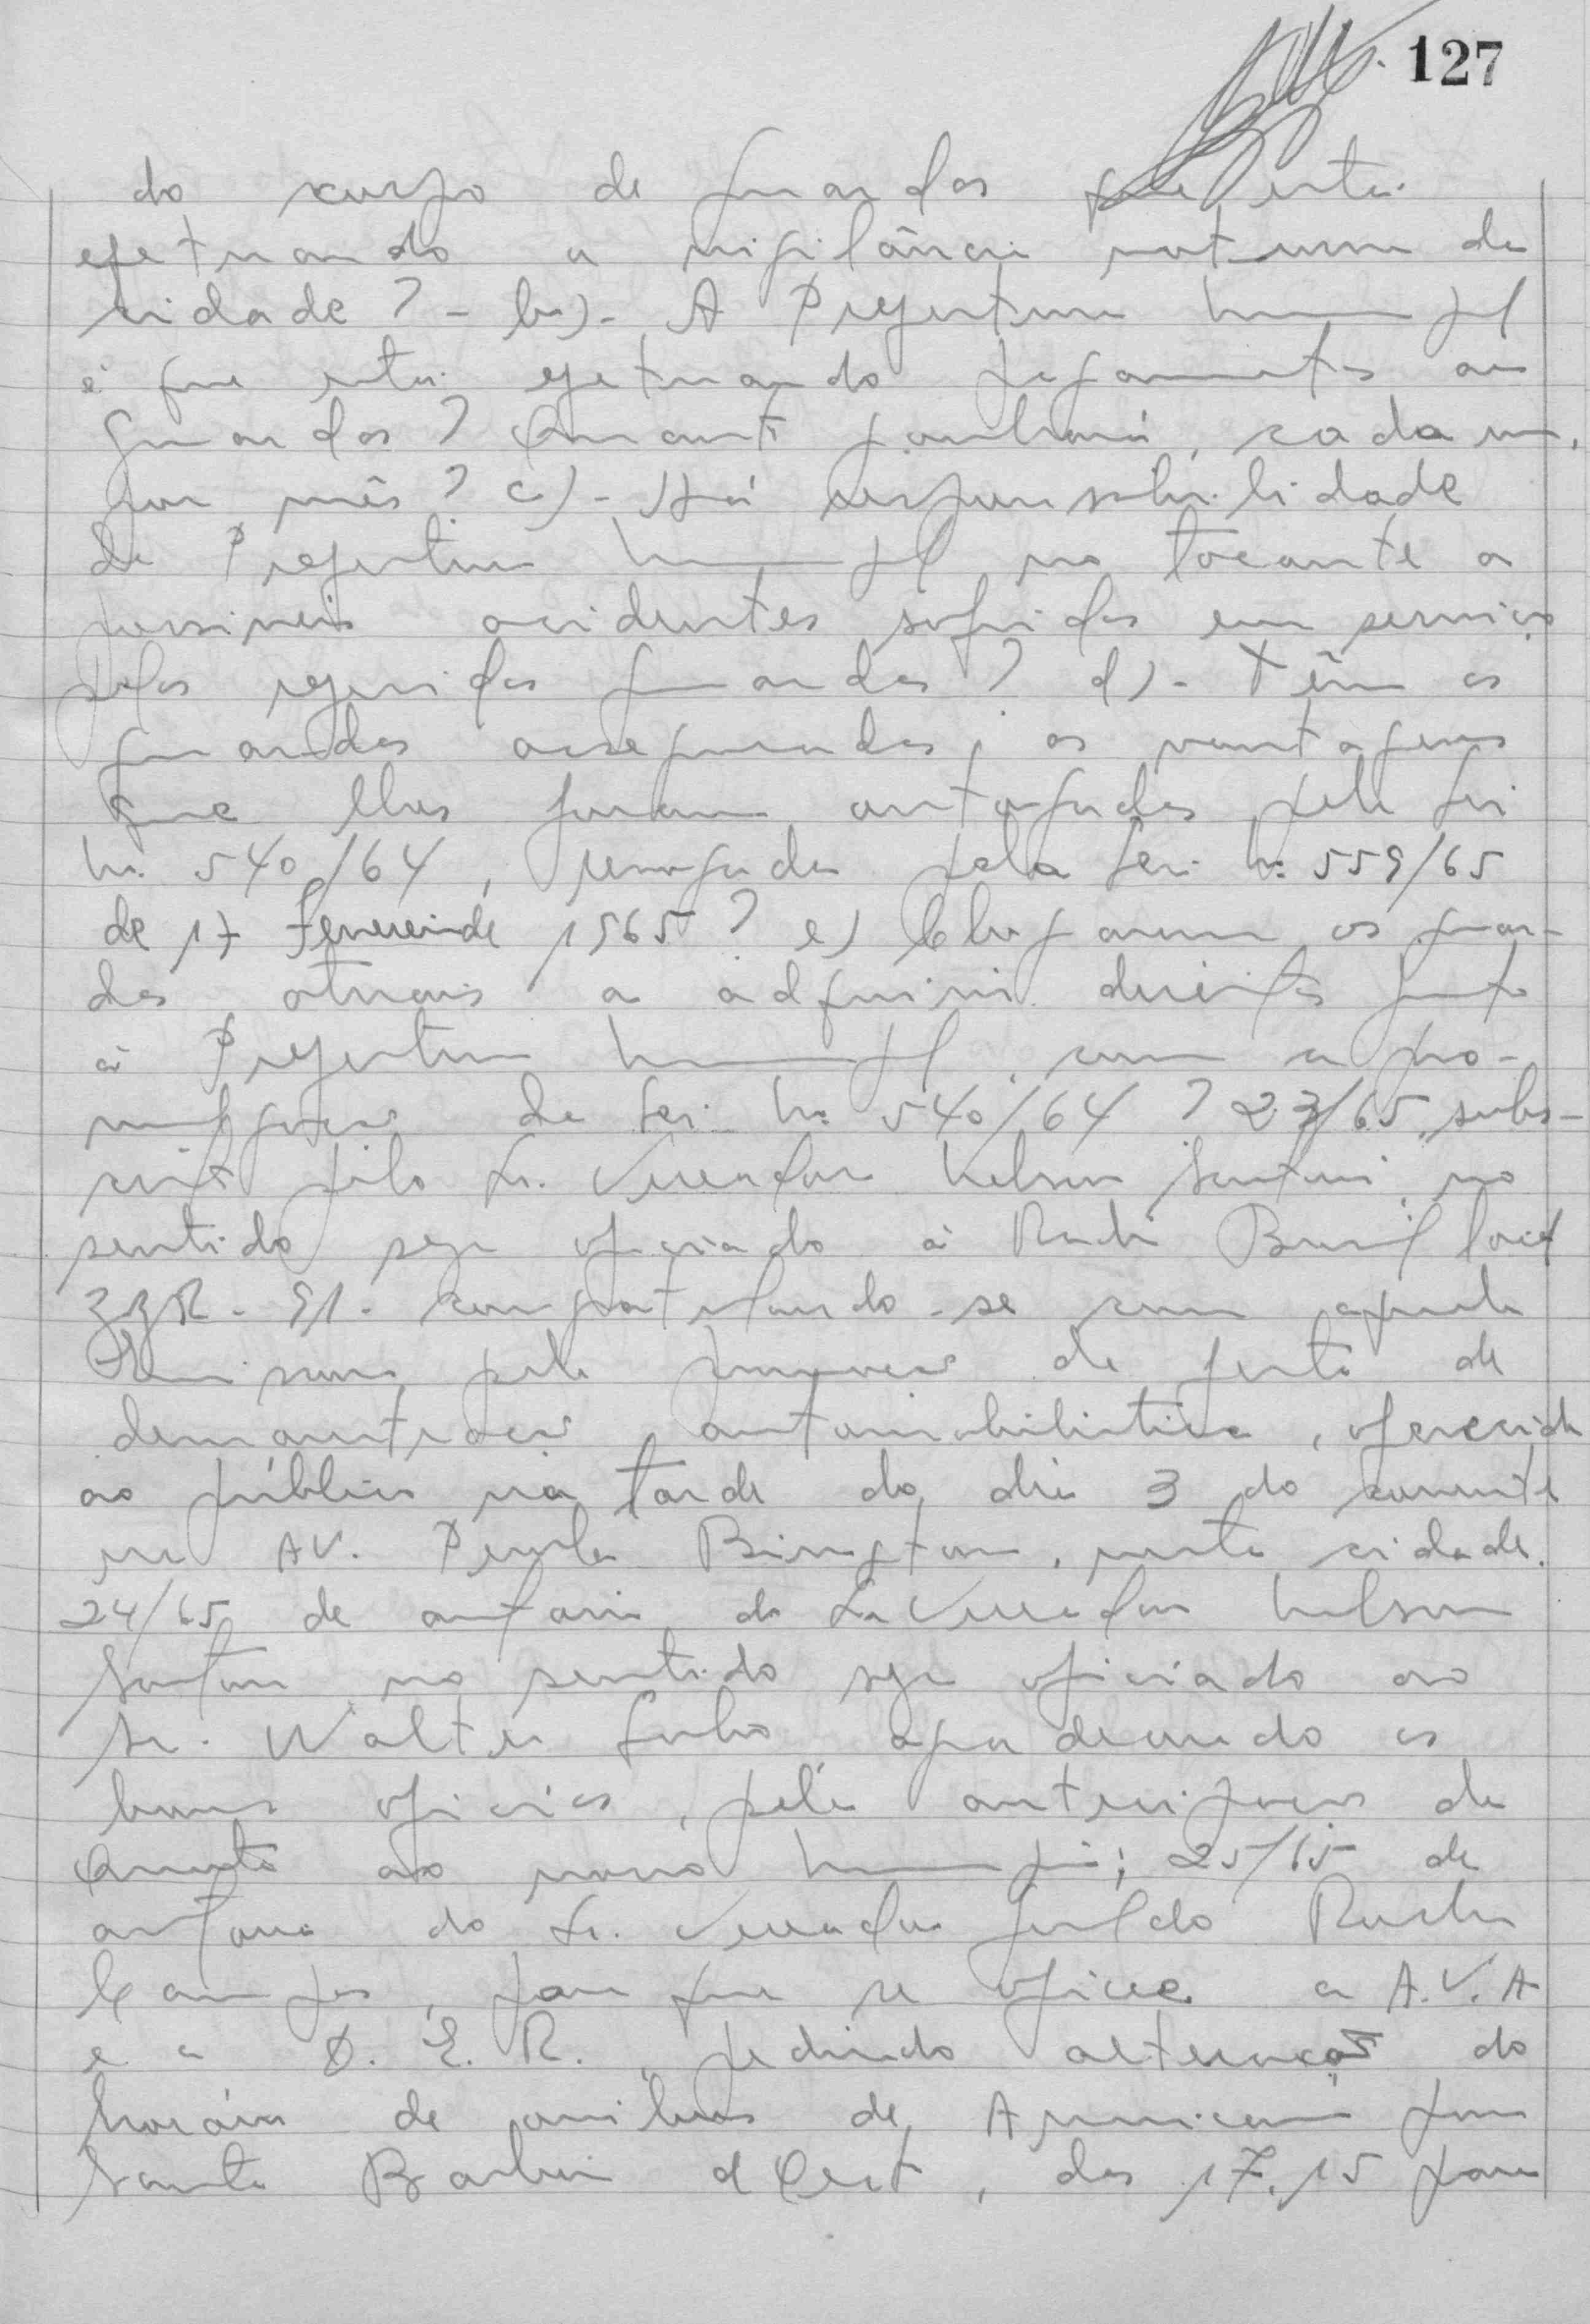 127
do corpo de guardas que está
efetuando a vigilância noturna da
cidade? - b) - A Prefeitura Municipal
é que está efetuando pagamentos aos
guardas? Quanto ganhará, cada um,
por mês? c) - Há responsabilidade
da Prefeitura Municipal no tocante a
possíveis acidentes sofridos em serviço
pelos referidos guardas? d) - Têm os
guardas assegurados, as vantagens
que lhes foram outorgadas pela Lei
nº 540/64, revogada pela Lei nº 559/65
de 17 Fevereiro de 1965? e) Chegaram os guar-
das atuais a adquirir direitos junto
à Prefeitura Municipal, com a pro-
mulgação da Lei nº 540/64? 23/65, subs-
crito pelo Sr. Vereador Nelson Santan, no
sentido seja oficiado à Radio Brasil local
ZYR-91. congratulando-se com aquela
Emissora pela promoção da festa de
demonstração automobilistica, oferecida
ao público na tarde do dia 3 do corrente
na AV. Perola Bington, nesta cidade.
24/65 de autoria do Sr. Vereador Nelson
Santan no sentido seja oficiado ao
Sr. Walter agradecendo os
bons oficios, pela antecipação da
ao nosso Municipio; 25/65 de
autoria do Sr. Vereador Geraldo Rocha
Campos, para que se oficie a A.V.A
e a D.E.R., pedindo alteração do
horário de onibus de Americana para
Santa Barbara d'Oeste, das 17,15 para